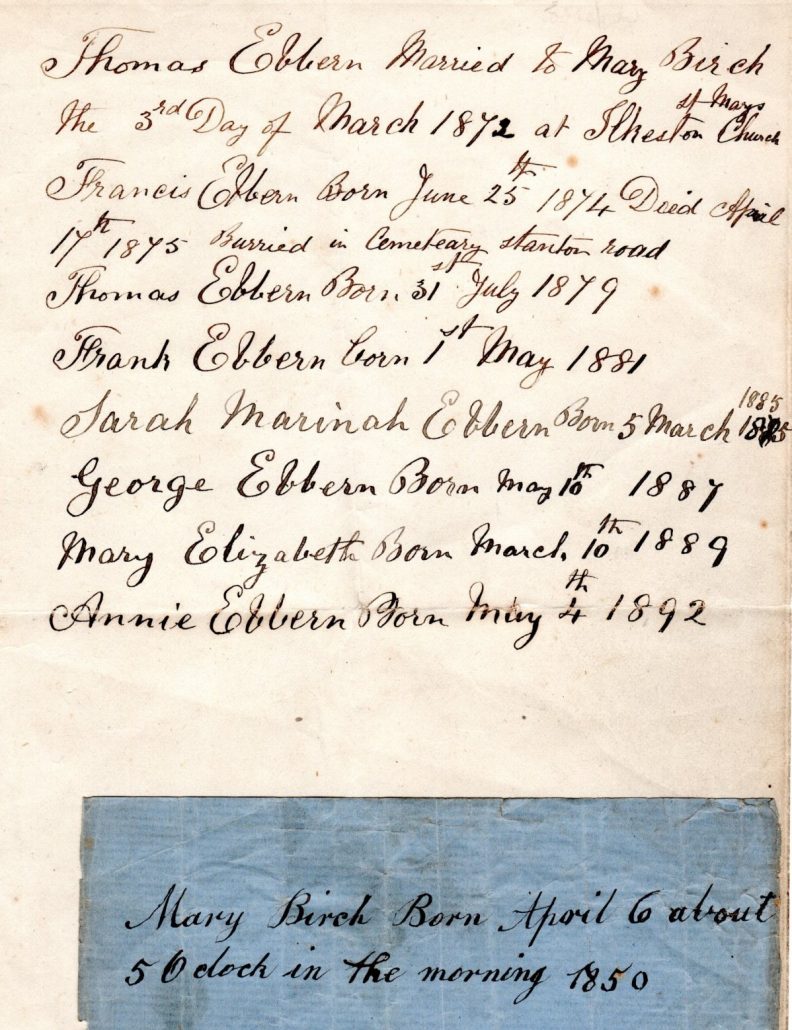 Thomas Ebbern Married to Mary Birch
the 3rd Day of March 1872 at Ilkeston st Marys Church
Francis Ebbern Born June 25th 1874 Died April
17th 1875 Burried in Cemeteary stanton road
Thomas Ebbern Born 31st July 1879
Frank Ebbern born 1st May 1881
Sarah Marinah Ebbern Born 5 March 1885
George Ebbern Born May 10th 1887
Mary Elizabeth Born March 10th 1889
Annie Ebbern Born May 4th 1892
Mary Birch Born April 6 about
5 O clock in the morning 1850